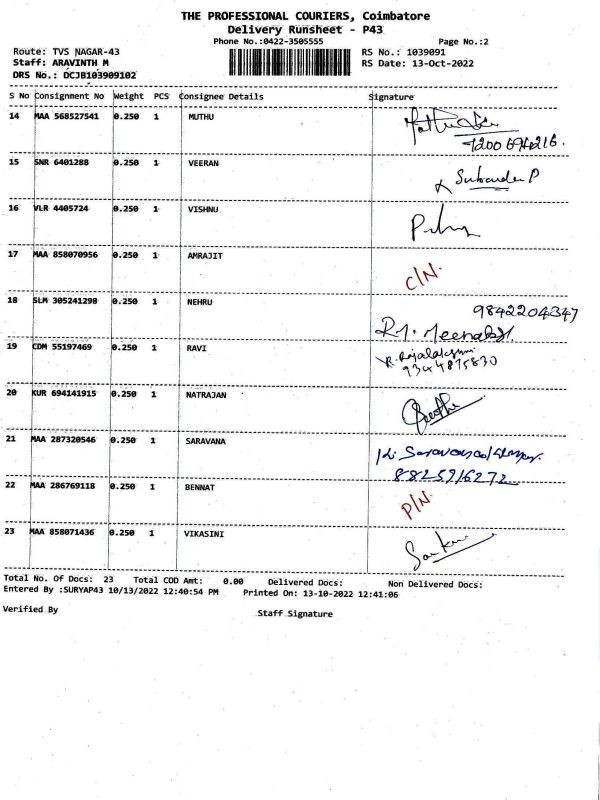 THE PROFESSIONAL COURIERS, Coimbatore
Delivery Runsheet - P43
Phone No.:0422-3505555 Page No.:2
Route: TVS NAGAR-43 RS No.: 1039091
Staff: ARAVINTH M RS Date: 13-Oct-2022
DRS No.: DCJB103909102
S No Consignment No Weight PCS Consignee Details Signature
14 MAA 568527541 0.250 1 MUTHU
7200694216.
15 SNR 6401288 0.250 1 VEERAN
16 VLR 4405724 0.250 1 VISHNU
17 MAA 858070956 0.250 1 AMRAJIT
C/N.
18 SLM 305241298 0.250 1 NEHRU 9842204347
19 CDM 55197469 0.250 1 RAVI R. Rajalakshmi
9344875830
20 KUR 694141915 0.250 1 NATRAJAN
21 MAA 287320546 0.250 1 SARAVANA
8825916272
22 MAA 286769118 0.250 1 BENNAT
P/N.
23 MAA 858071436 0.250 1 VIKASINI
Total No. Of Docs: 23 Total COD Amt: 0.00 Delivered Docs: Non Delivered Docs:
Entered By :SURYAP43 10/13/2022 12:40:54 PM Printed On: 13-10-2022 12:41:06
Verified By Staff Signature